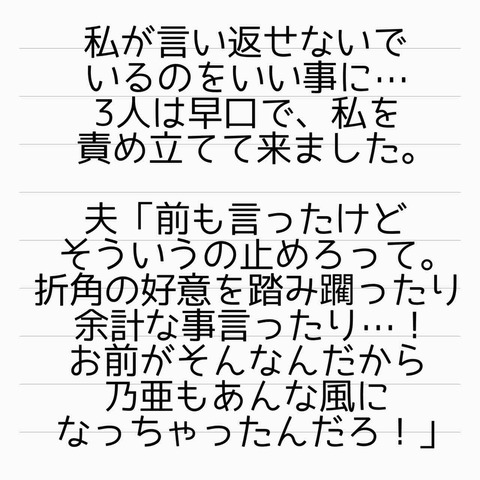 私が言い返せないで
いるのをいい事に…
3人は早口で、私を
責め立てて来ました。
夫「前も言ったけど
そういうの止めろって。
折角の好意を踏み躙ったり
余計な事言ったり…！
お前がそんなんだから
乃亜もあんな風に
なっちゃったんだろ！」